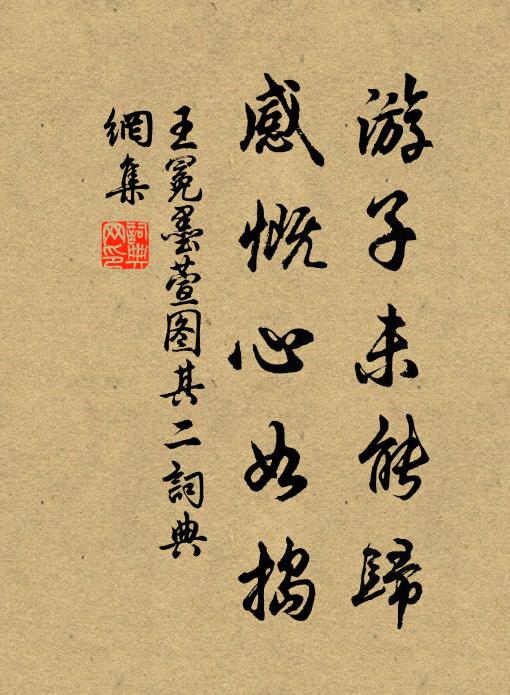 游子未能歸
感慨心如搗
王冕墨萱图其二詞典
網集
詞典
网印